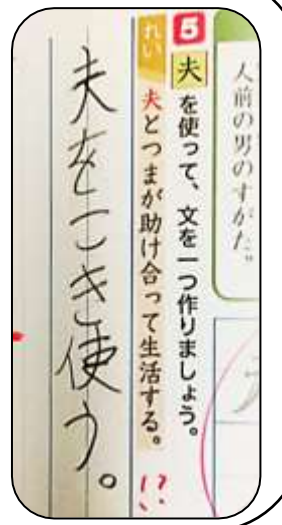 人前の男のすがた。
5 夫を使って、文を一つ作りましょう。
れい 夫とつまが助け合って生活する。
!?
夫をこき使う。